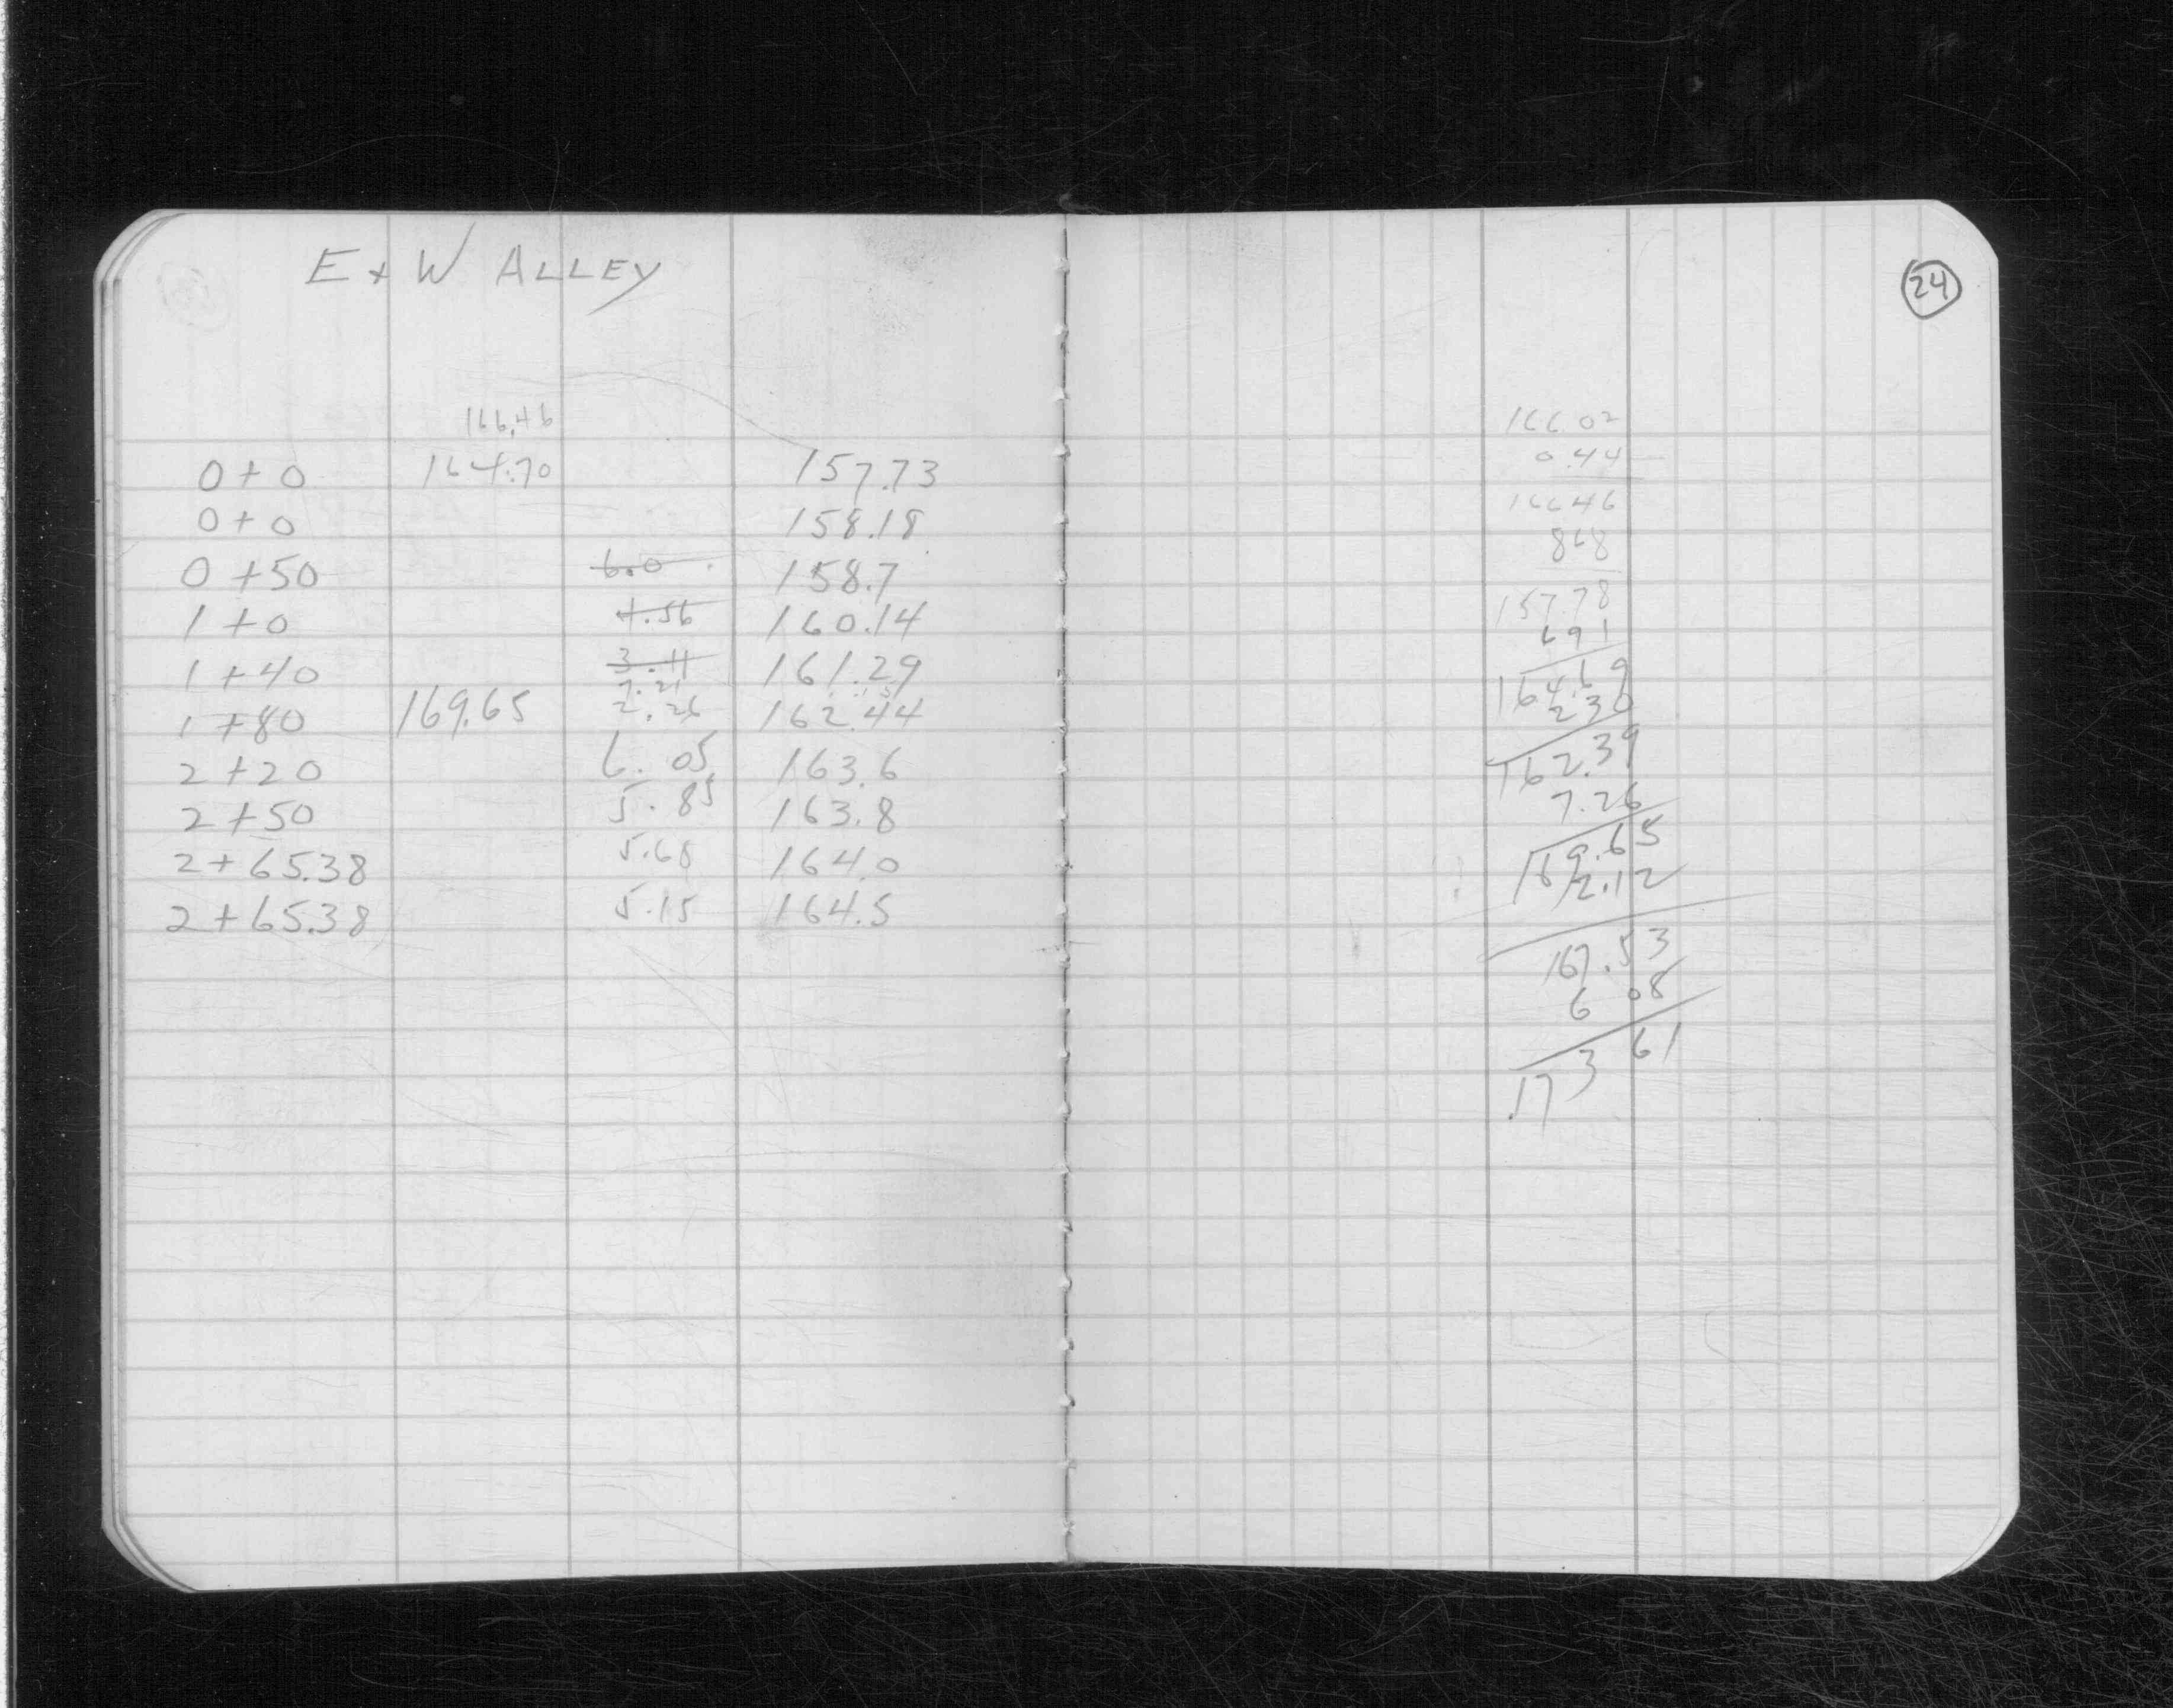 E + W ALLEY
166.46
0+0 164.70 157.73
0+0 158.18
0+50 6.0 158.7
1+0 4.56 160.14
1+40 3.11 161.29
7.21
1+80 169.65 2.26 162.44
2+20 6.05 163.6
2+50 5.85 163.8
2+65.38 5.68 164.0
2+65.38 5.15 164.5
24
166.02
0.44
166 46
868
157.78
6 91
164.69
2 30
162.39
7.26
169.65
2.12
167.53
6 08
173 61